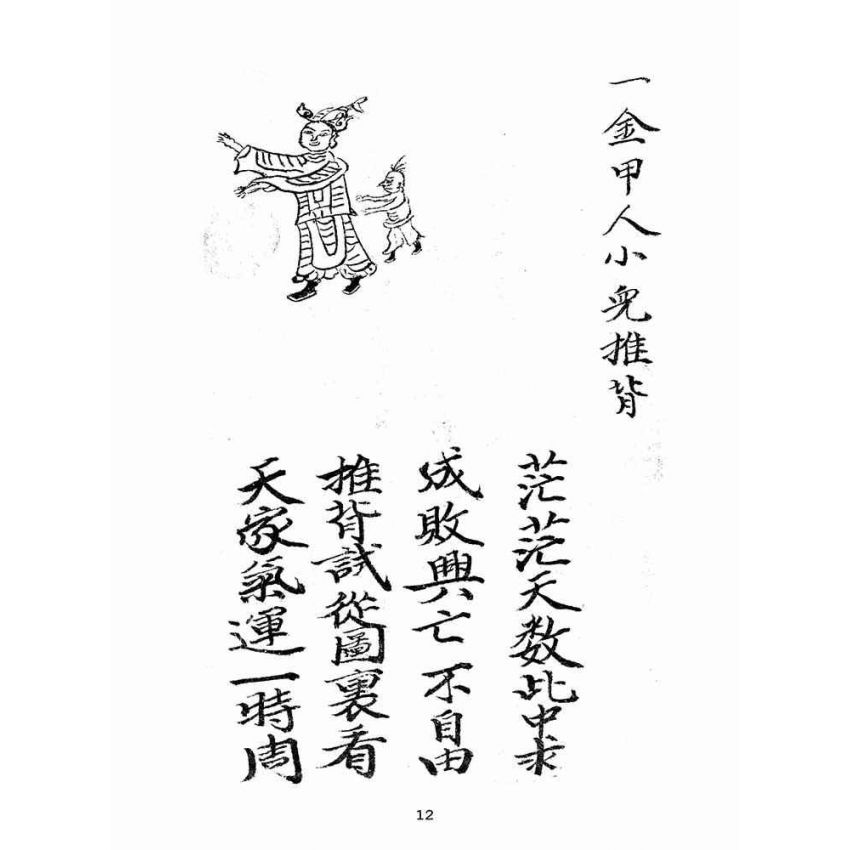 一金甲人小兒推背
茫茫天数此中求
成敗興亡不自由
推背試從圖裏看
天家氣運一時周
12